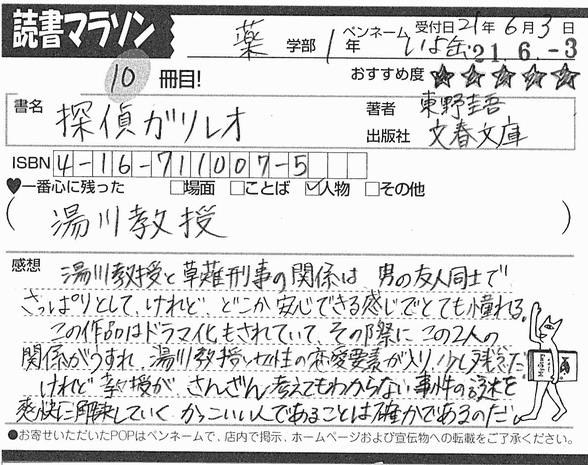 読書マラソン
薬 学部 1年 ペンネーム いよ缶 受付日 21年 6月 3日
'21.6.-3
10 冊目! おすすめ度 ★★★★★
書名 探偵ガリレオ 著者 東野圭吾
出版社 文春文庫
ISBN 4-16-711007-5
♥一番心に残った □場面 □ことば ☑人物 □その他
( 湯川教授 )
感想 湯川教授と草薙刑事の関係は 男の友人同士で
さっぱりとして、けれど、どこか安心できる感じでとても憧れる。
この作品はドラマ化もされていて、その際に この2人の
関係がうすれ、湯川教授と女性の恋愛要素が入り 少し残念だ
けれど 教授が さんざん考えてもわからない事件の謎を
爽快に解決していく かっこいい人であることは確かであるのだ。
●お寄せいただいたPOPはペンネームで、店内で掲示、ホームページおよび宣伝物への転載をご了承ください。